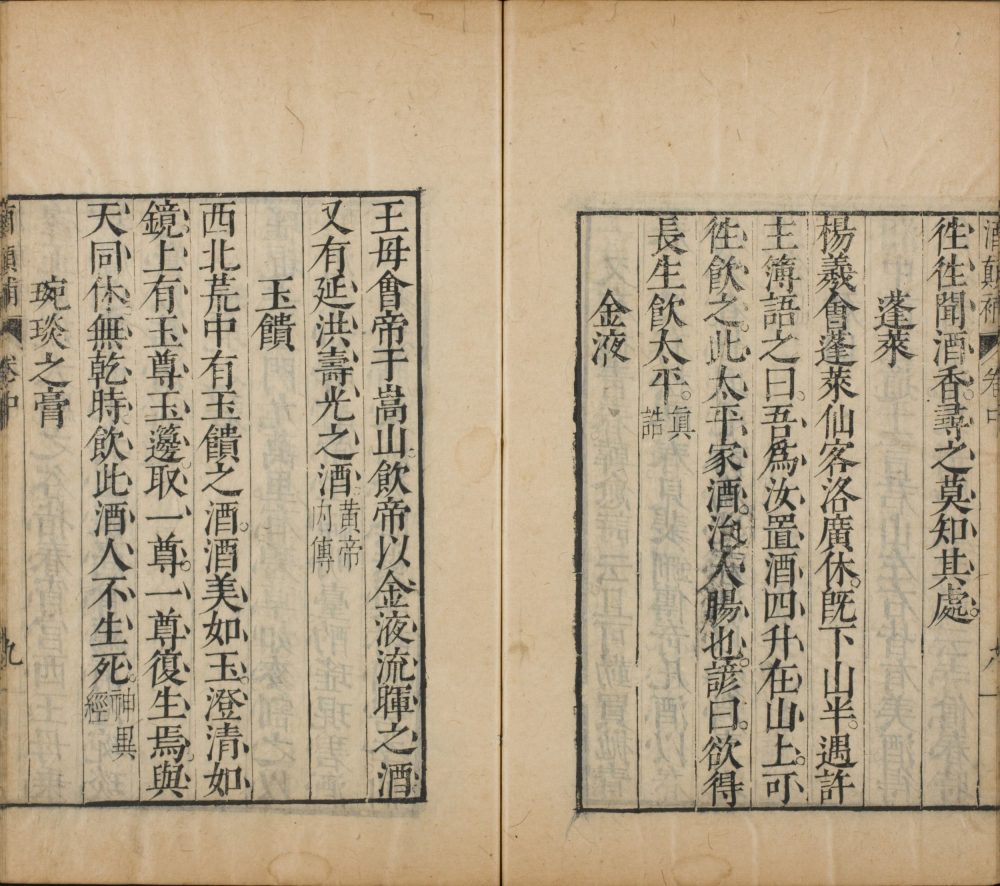 酒顛補 卷中
徃徃聞酒香。尋之莫知其處。
蓬萊
楊羲會蓬萊仙客洛廣休。旣下山半。遇許
主簿語之曰。吾爲汝置酒四升在山上。可
徃飲之。此太平家酒。治人腸也。諺曰。欲得
長生飲太平。眞誥
金液
王母會帝于嵩山。飲帝以金液流暉之酒
又有延洪壽光之酒。黃帝內傳
玉饋
西北荒中有玉饋之酒。酒美如玉。澄清如
鏡。上有玉尊玉籩。取一尊。一尊復生焉。與
天同休。無乾時。飲此酒人不生死。神異經
琬琰之膏
酒顛補 卷中 九